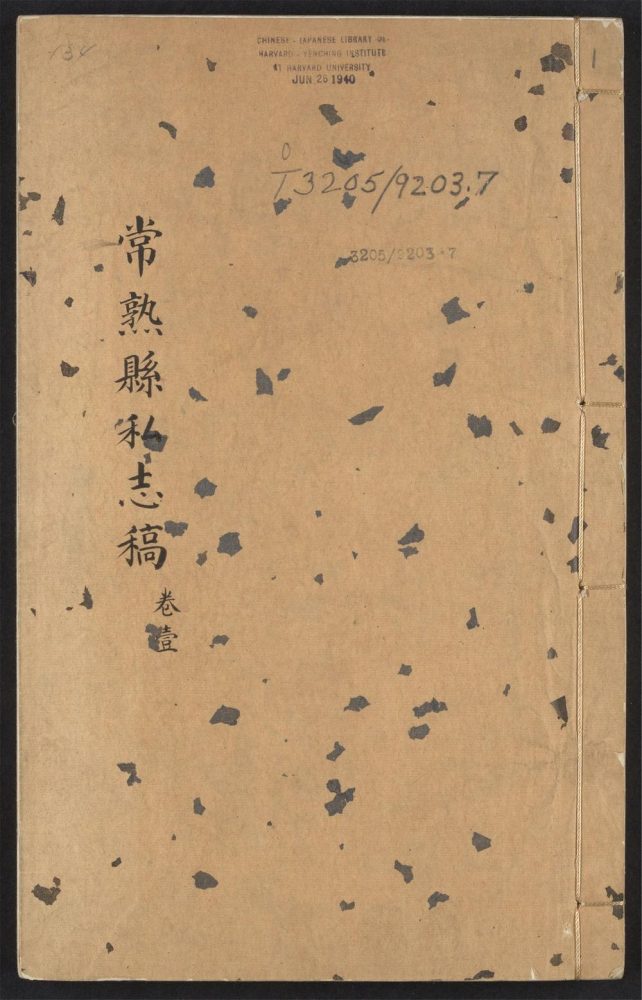 134
CHINESE-JAPANESE LIBRARY OF
HARVARD-YENCHING INSTITUTE
AT HARVARD UNIVERSITY
JUN 25 1940
1
0
T3205/9203.7
3205/9203.7
常熟縣私志稿
卷壹